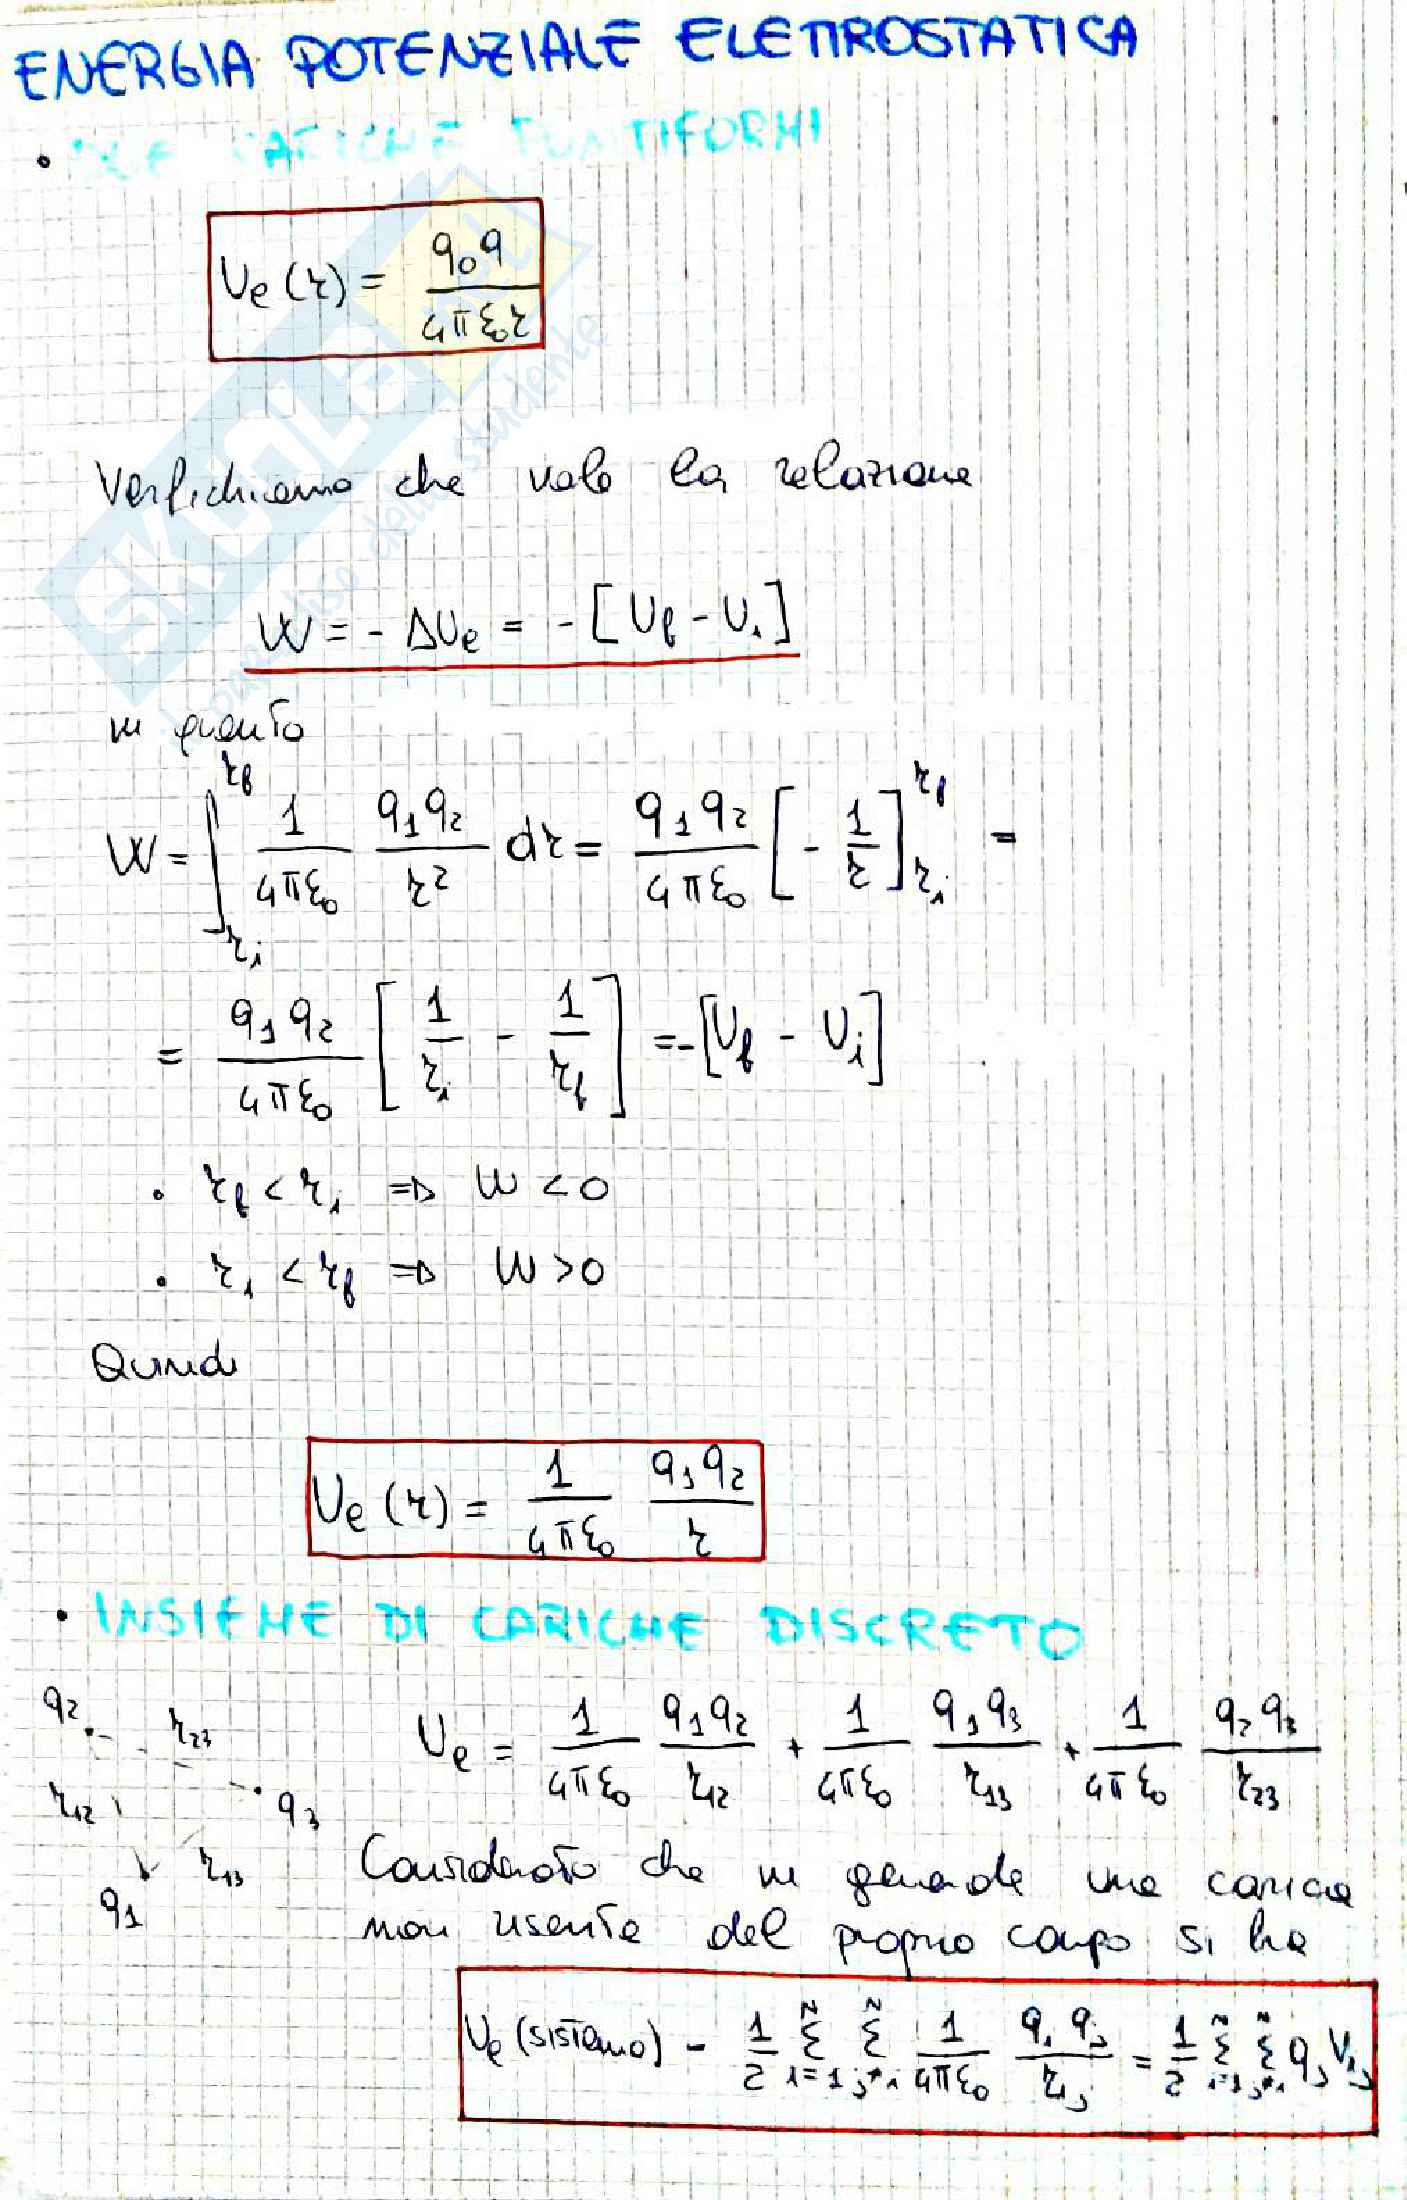 ENERGIA POTENZIALE ELETTROSTATICA
• DUE CARICHE PUNTIFORMI
Ue(r) = q0q / 4πε0r
Verifichiamo che vale la relazione
W = - ΔUe = - [Uf - Ui]
in quanto
W = ∫_{ri}^{rf} 1/4πε0 q1q2/r² dr = q1q2/4πε0 [- 1/r]_{ri}^{rf} =
= q1q2/4πε0 [1/ri - 1/rf] = -[Uf - Ui]
• rf < ri ⇒ W < 0
• ri < rf ⇒ W > 0
Quindi
Ue(r) = 1/4πε0 q1q2/r
• INSIEME DI CARICHE DISCRETO
q2 r23
r12 q3
r13
q1
Ue = 1/4πε0 q1q2/r12 + 1/4πε0 q1q3/r13 + 1/4πε0 q2q3/r23
Considerato che in generale una carica
non risente del proprio campo si ha
Ue (sistema) = 1/2 Σ_{i=1}^{N} Σ_{j≠i}^{N} 1/4πε0 qi qj/rij = 1/2 Σ_{i=1}^{N} Σ_{j≠i}^{N} qj Vij
SKUOLA.net
il paradiso dello studente